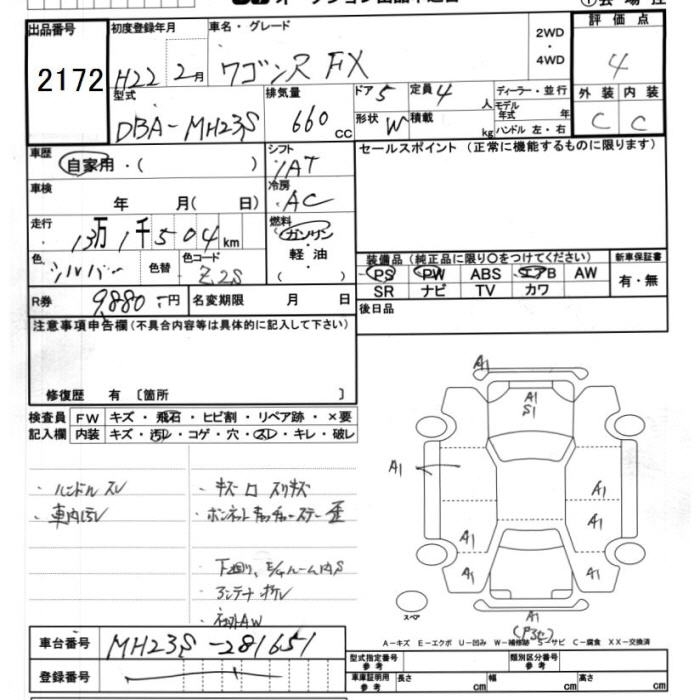 出品番号
2172
初度登録年月
H22 2月
車名・グレード
ワゴンR FX
2WD
・
4WD
評価点
4
外装 内装
C C
型式
DBA-MH23S
排気量
660 cc
ドア 5
定員 4 人
形状 W
積載 kg
ディーラー・並行
モデル年式 年
ハンドル 左・右
車歴
自家用・( )
シフト
IAT
車検
年 月( 日)
冷房
AC
走行
13万1千504km
燃料
ガソリン
軽油
( )
色
シルバー
色替
色コード
Z2S
R券
9,880円
名変期限 月 日
セールスポイント (正常に機能するものに限ります)
装備品 (純正品に限り○をつけてください)
PS PW ABS エアB AW
SR ナビ TV カワ
新車保証書
有・無
後日品
注意事項申告欄(不具合内容等は具体的に記入して下さい)
修復歴 有 〔箇所 〕
検査員記入欄
FW キズ・飛石・ヒビ割・リペア跡・×要
内装 キズ・汚レ・コゲ・穴・スレ・キレ・破レ
・ハンドルスレ
・車内汚レ
・キズ 凹 スリキズ
・ボンネットキャッチャーステー歪
下廻り、E/Gルーム内S
・アンテナ
・社外AW
A1
A1
S1
A1
A1
A1
A1
A1
A1
A1
スペア
A-キズ E-エクボ U-凹み W-補修跡 S-サビ C-腐食 XX-交換済
車台番号
MH23S-281651
登録番号
型式指定番号
参考
類別区分番号
参考
車庫証明用
参考
長さ cm
幅 cm
高さ cm